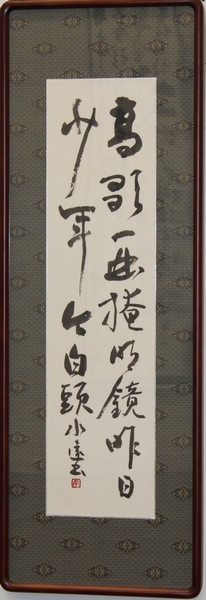 高歌一曲掩明鏡昨日
少年今白頭 小遠書